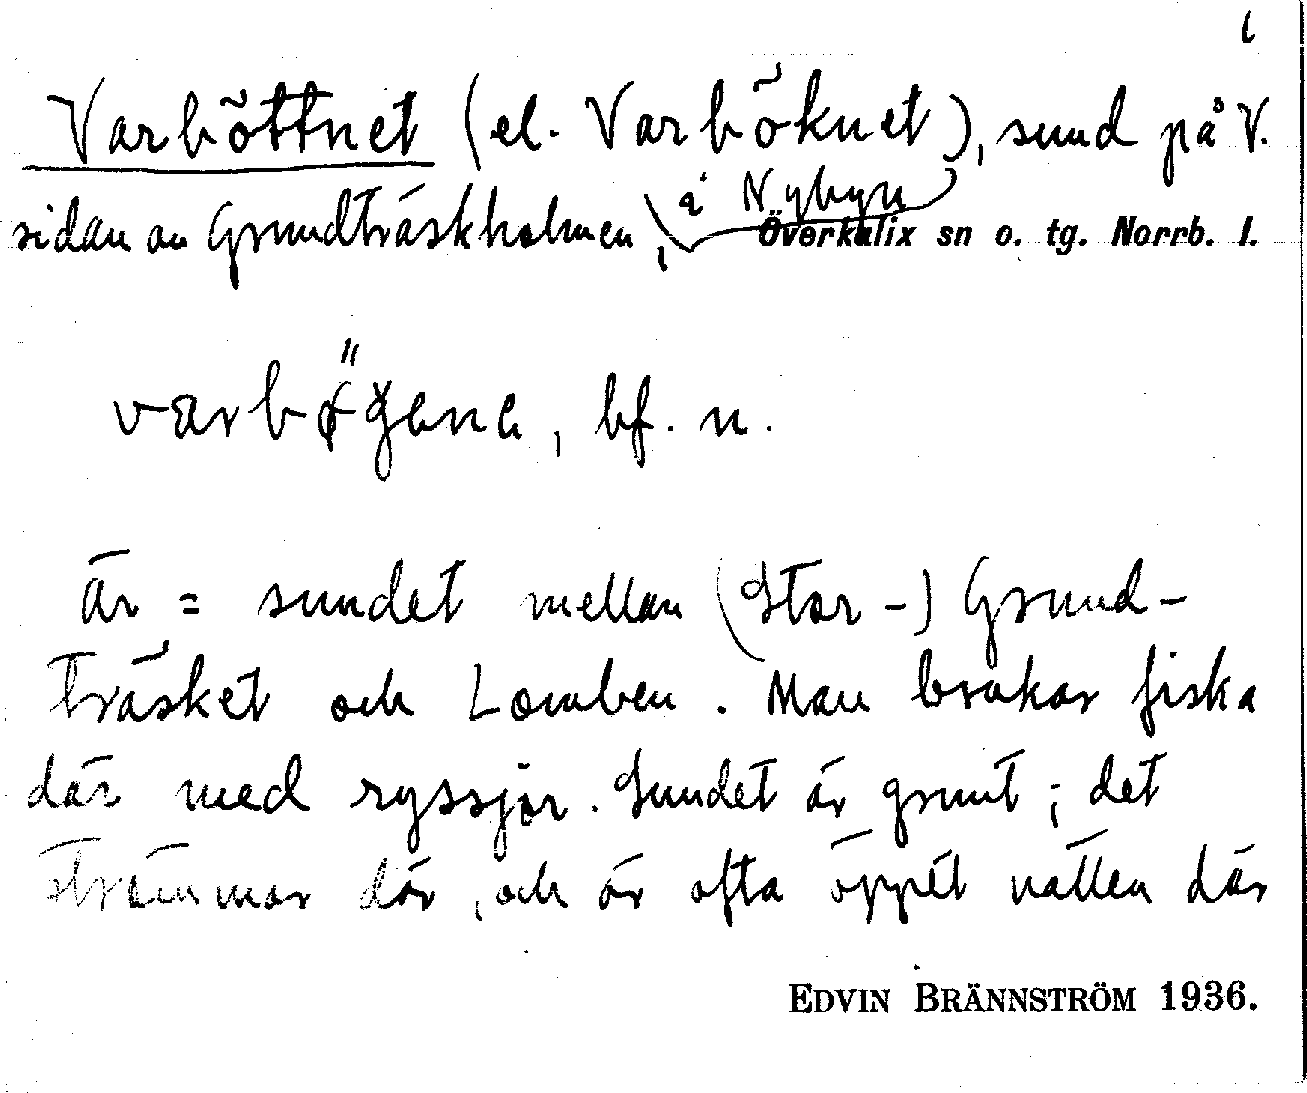 Varböttnet (el. Varböknet), sund på V.
sidan av Grundträskholmen, i Nybyn Överkalix sn o. tg. Norrb. l.
bf. n.
är = sundet mellan (Stor-) Grund-
träsket och Lomben. Man brukar fiska
där med ryssjor. Sundet är grunt; det
strömmar där, och är ofta öppet vatten där
EDVIN BRÄNNSTRÖM 1936.